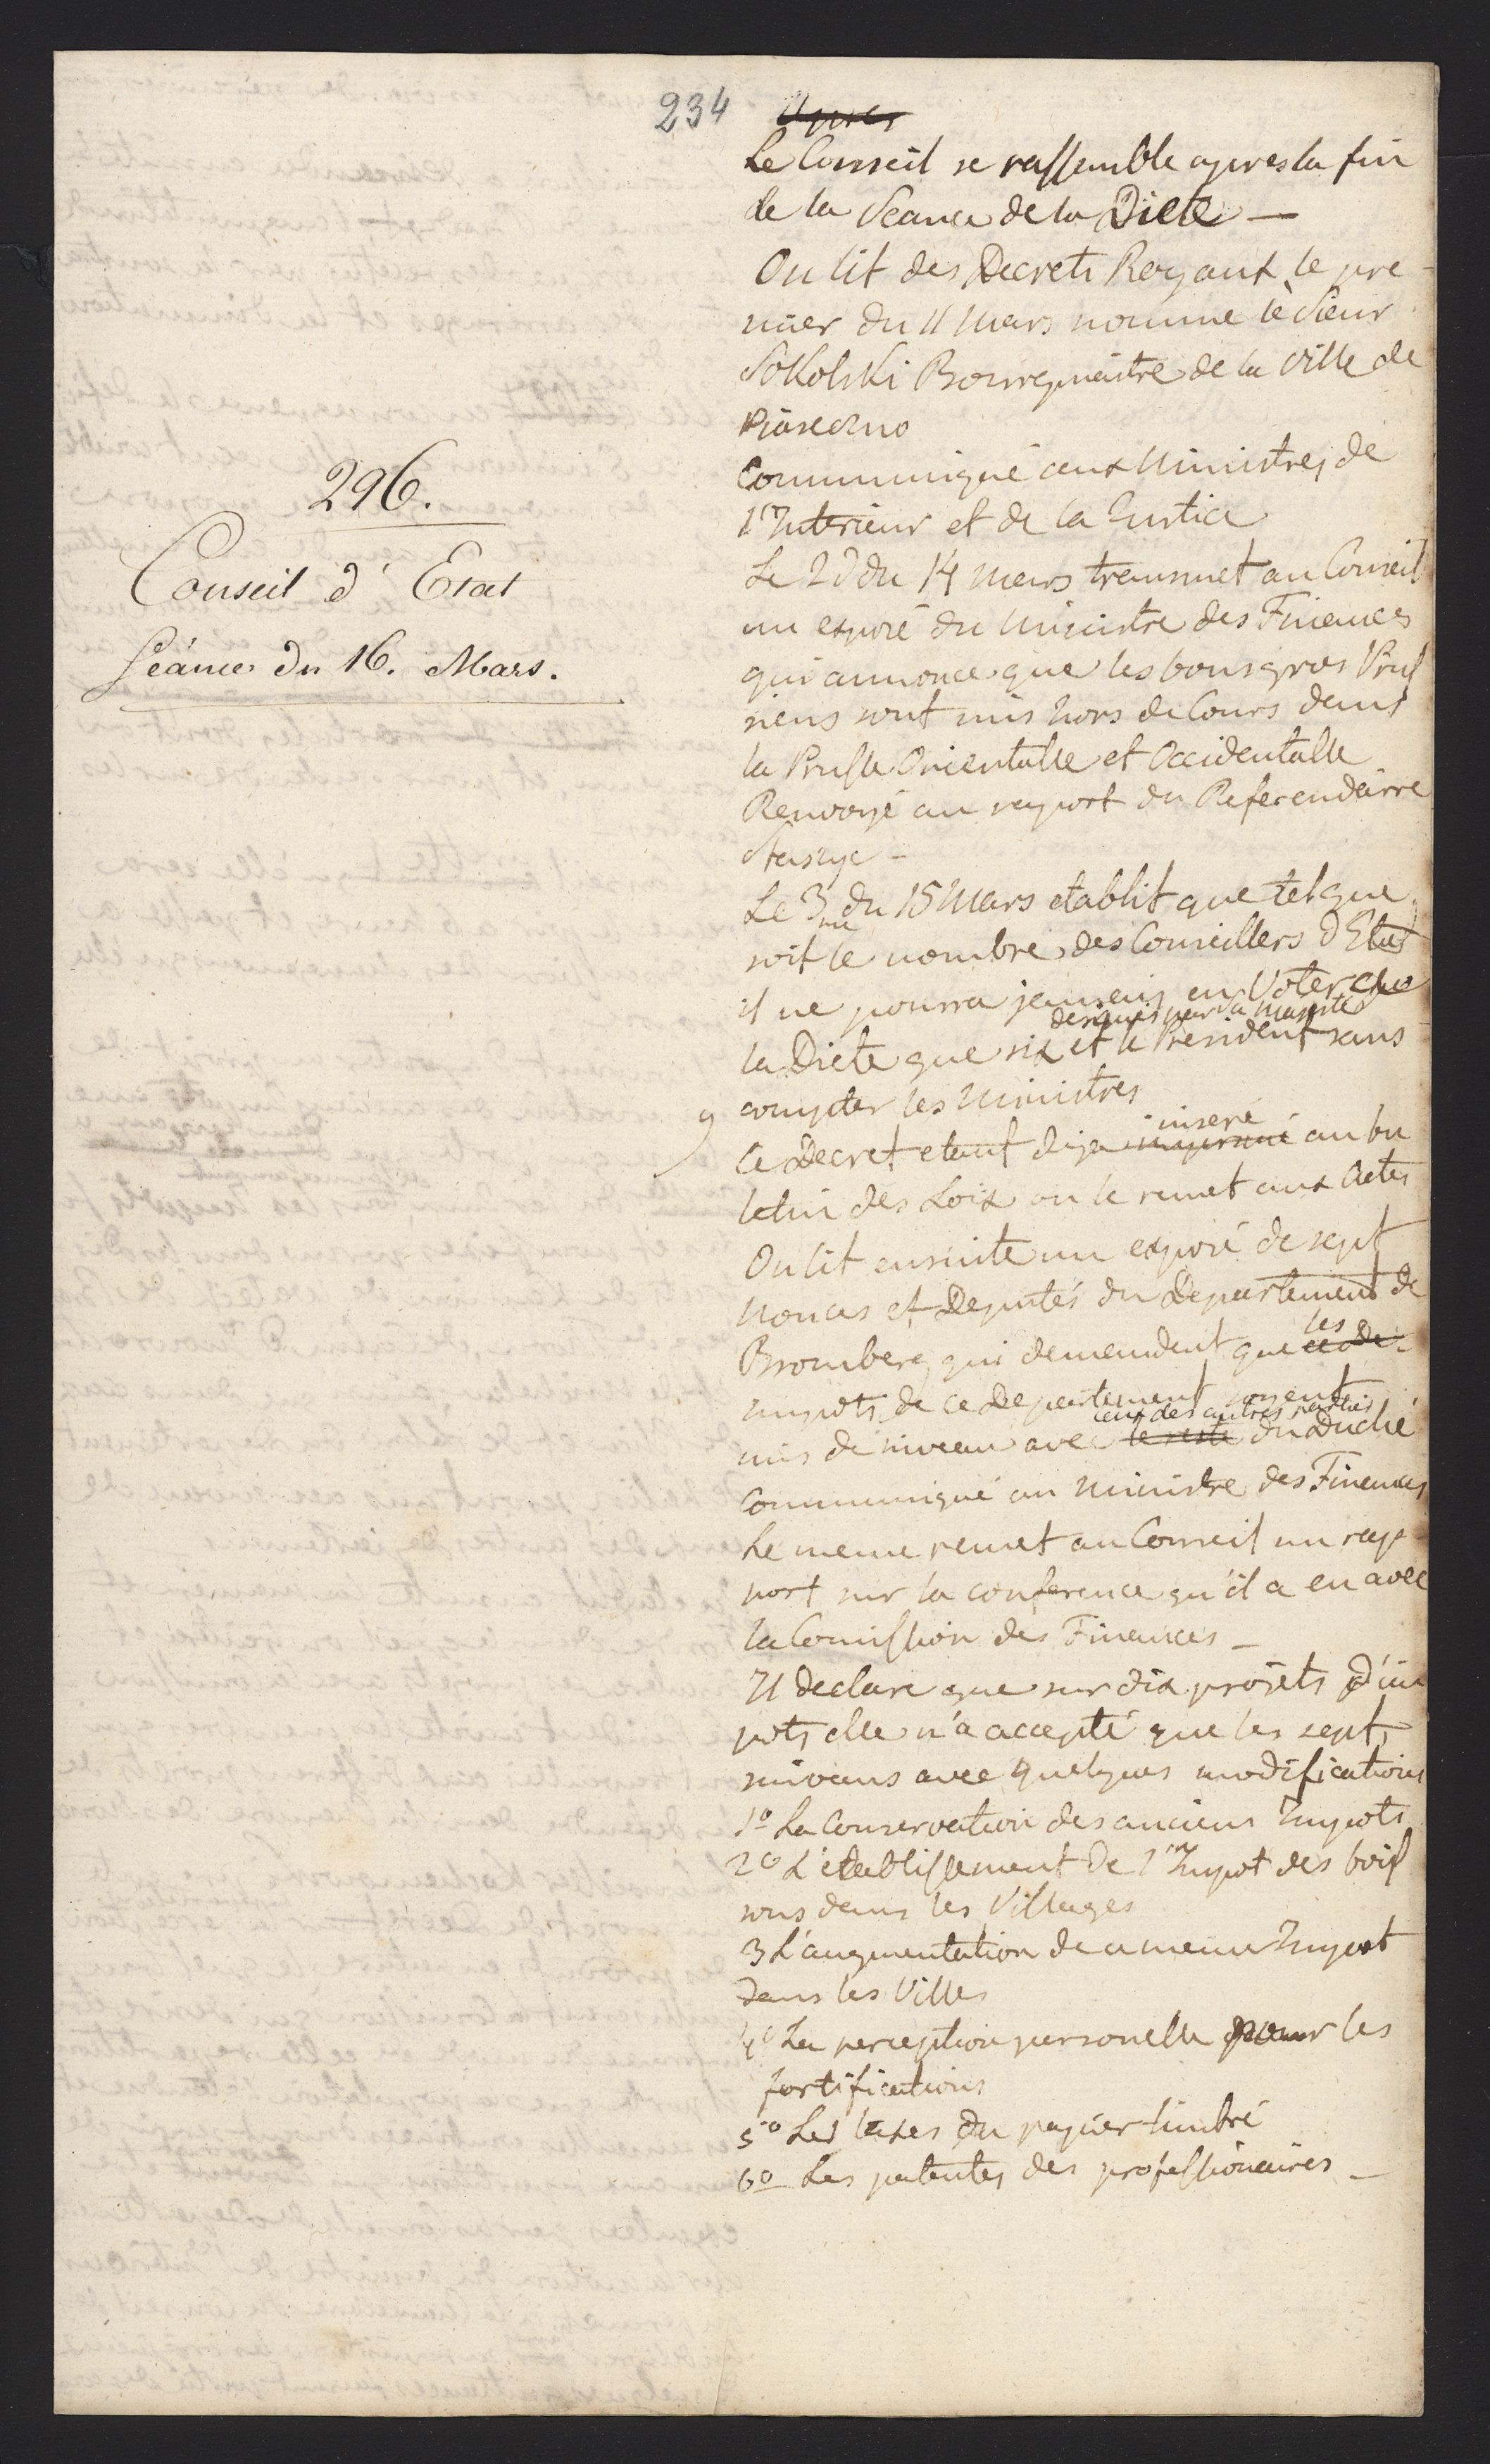 234
Le Conseil se rassemble apres la fin
de la Seance de la Diete —
On lit des Decrets Royaux le pre-
mier du 11 Mars nomme le Sieur
Sokolski Bourgmaitre de la Ville de
Piaseczno
Communiqué aux Ministres de
l'Interieur et de la Justice
296.
Conseil d'Etat
Séance du 16. Mars.
Le 2d du 14 Mars transmet au Conseil
un exposé du Ministre des Finances
qui annonce que les bons gros Prus
siens sont mis hors de Cours dans
la Prusse Orientalle et Occidentalle
Renvoyé au raport du Referendaire
Staszyc —
Le 3me du 15 Mars etablit que tel que
soit le nombre des Conseillers d'Etat
il ne pourra jamais en Voter a
designés par Sa Majesté
la Diete que six et le President sans
compter les Ministres
inseré
Ce Decret etant deja imprimé au bu
letin des Loix on le remet aux Actes
On lit ensuite un exposé de sept
Nonces et Deputés du Departement de
les
Bromberg qui demandent que ce de
impots de ce Departement soyent
ceux des autres parties
mis de niveau avec le reste du Duché
Communiqué au Ministre des Finances
Le meme remet au Conseil un rap
port sur la conference qu'il a eu avec
la Comission des Finances —
Il declare que sur dix projets d'im
pots elle n'a accepté que les sept
suivans avec quelques modifications
1º La Conservation des anciens Impots
2º L'etablissement de l'Impot des bois
sons dans les Villages
3 L'augmentation de ce meme Impot
dans les Villes
4º La perception personelle pour les
fortifications
5º Les taxes du papier timbré
6º Les patentes des professionaires —